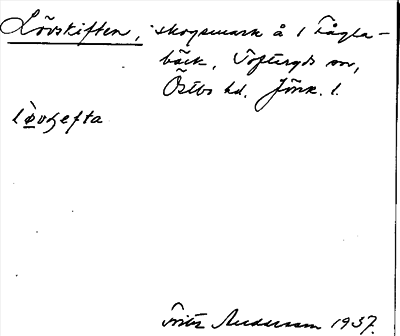 Lövskiften, skogsmark å 1 Fågla-
bäck, Tofteryds sn,
Östbo hd. Jönk. l.
Fritz Andersson 1937.